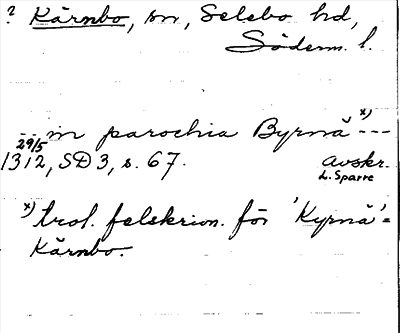 ? Kärnbo, sn, Selebo hd,
Söderm. l.
--- in parochia Byrnä x) ---
29/5
1312, SD 3, s. 67. avskr.
L. Sparre
x) trol. felskrivn. för 'Kyrnä' =
Kärnbo.